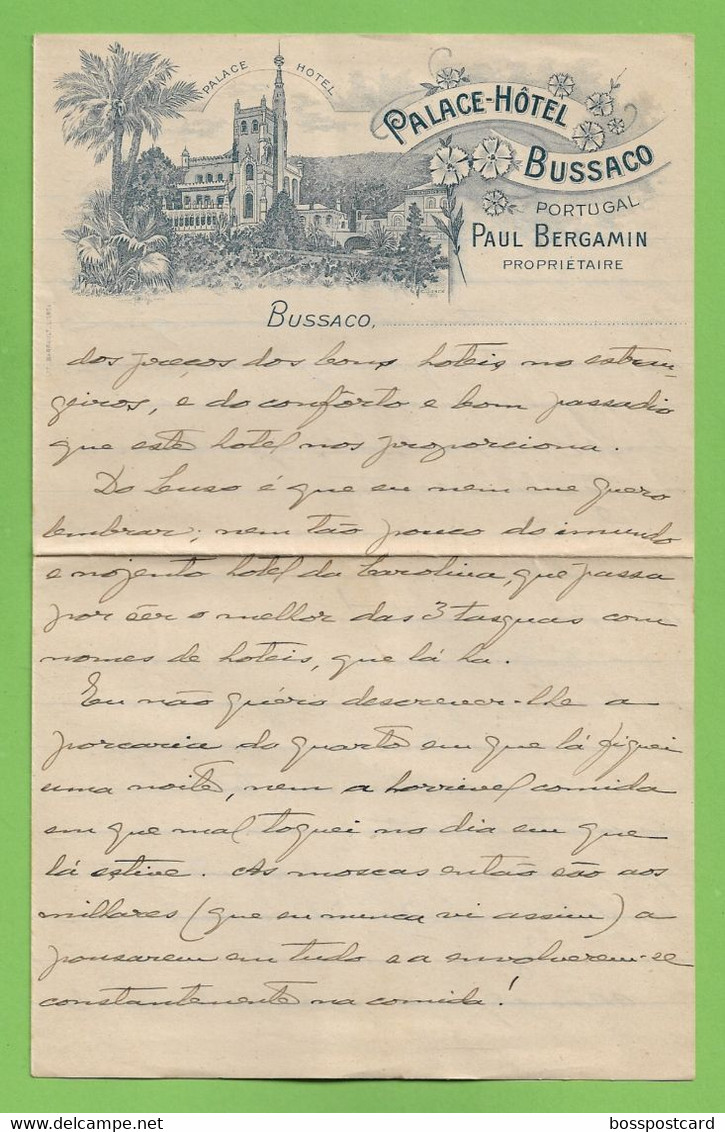 PALACE HOTEL
PALACE-HÔTEL
BUSSACO
PORTUGAL
PAUL BERGAMIN
PROPRIÉTAIRE
BUSSACO,
dos preços dos bons hoteis no estran-
geiros, e do confôrto e bom passadio
que este hotel nos proporciona.
Do Luso é que eu nem me quero
lembrar; nem tão pouco do imundo
e nojento hotel da Carolina, que passa
por sêr o melhor das 3 tasquas com
nomes de hoteis, que lá ha.
Eu não quéro descrever-lhe a
porcaria do quarto em que lá fiquei
uma noite, nem a horrivel comida
em que mal toquei no dia em que
lá estive. As moscas então são aos
milhares (que eu nunca vi assim) a
pousarem em tudo e a envolverem-se
constantemente na comida!
bosspostcard